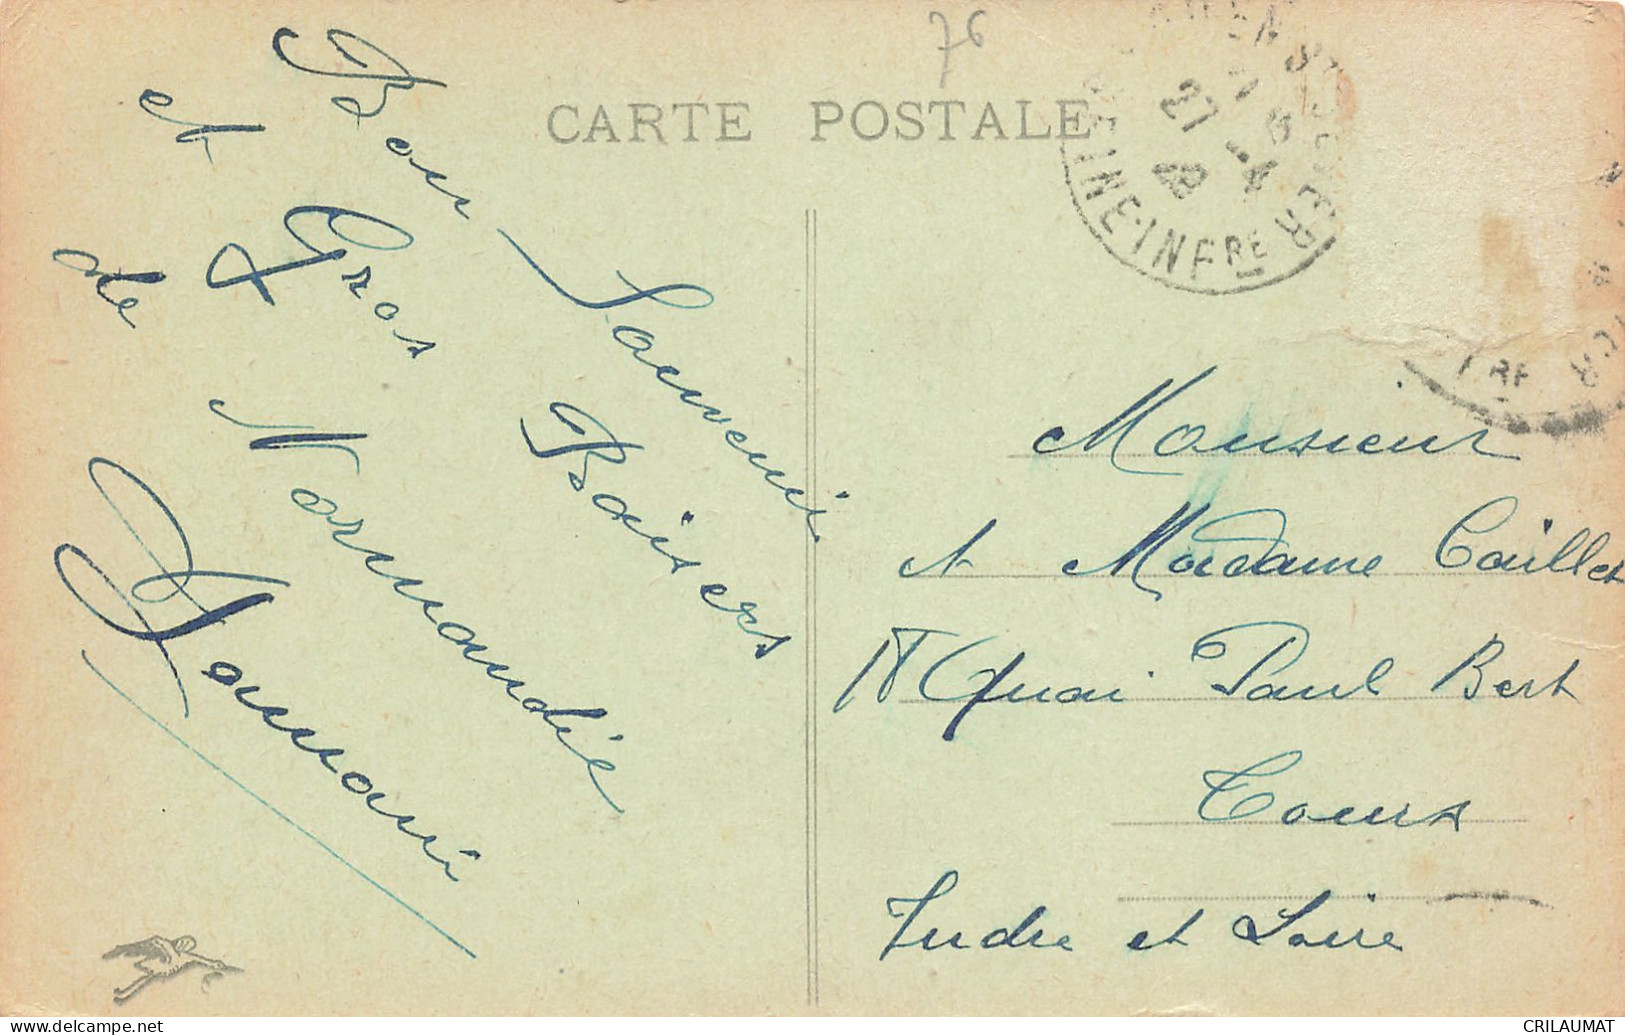 76
CARTE POSTALE
27 -4
28
SEINE-INFRE
Bon Souvenir
et Gros Baisers
de Normandie
Monsieur
et Madame Caillet
Quai Paul Bert
Tours
Indre et Loire
CRILAUMAT